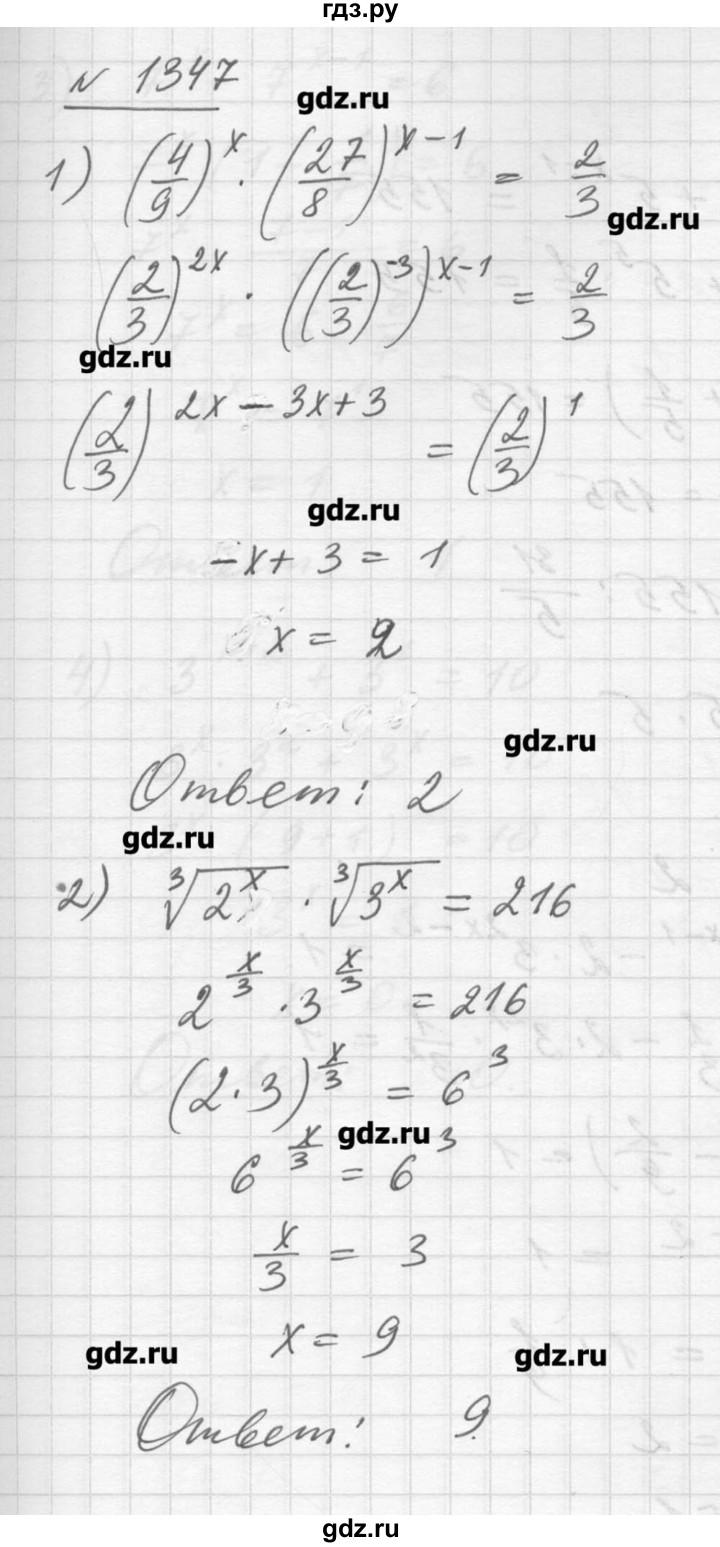 гдз.ру
№ 1347
gdz.ru
1) (4/9)^x · (27/8)^(x-1) = 2/3
gdz.ru
(2/3)^(2x) · ((2/3)^(-3))^(x-1) = 2/3
gdz.ru
(2/3)^(2x-3x+3) = (2/3)^1
gdz.ru
-x+3 = 1
x = 2
gdz.ru
Ответ: 2
gdz.ru
2) ∛(2^x) · ∛(3^x) = 216
2^(x/3) · 3^(x/3) = 216
(2·3)^(x/3) = 6^3
gdz.ru
6^(x/3) = 6^3
x/3 = 3
x = 9
gdz.ru
gdz.ru
Ответ: 9.
gdz.ru